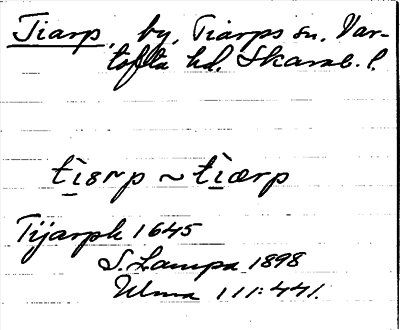 Tiarp, by, Tiarps sn. Var-
tofta hd. Skarab. l.
tìɜrp ~ tìærp
Tijarph 1645
S. Lampa 1898
Ulma 111:441.